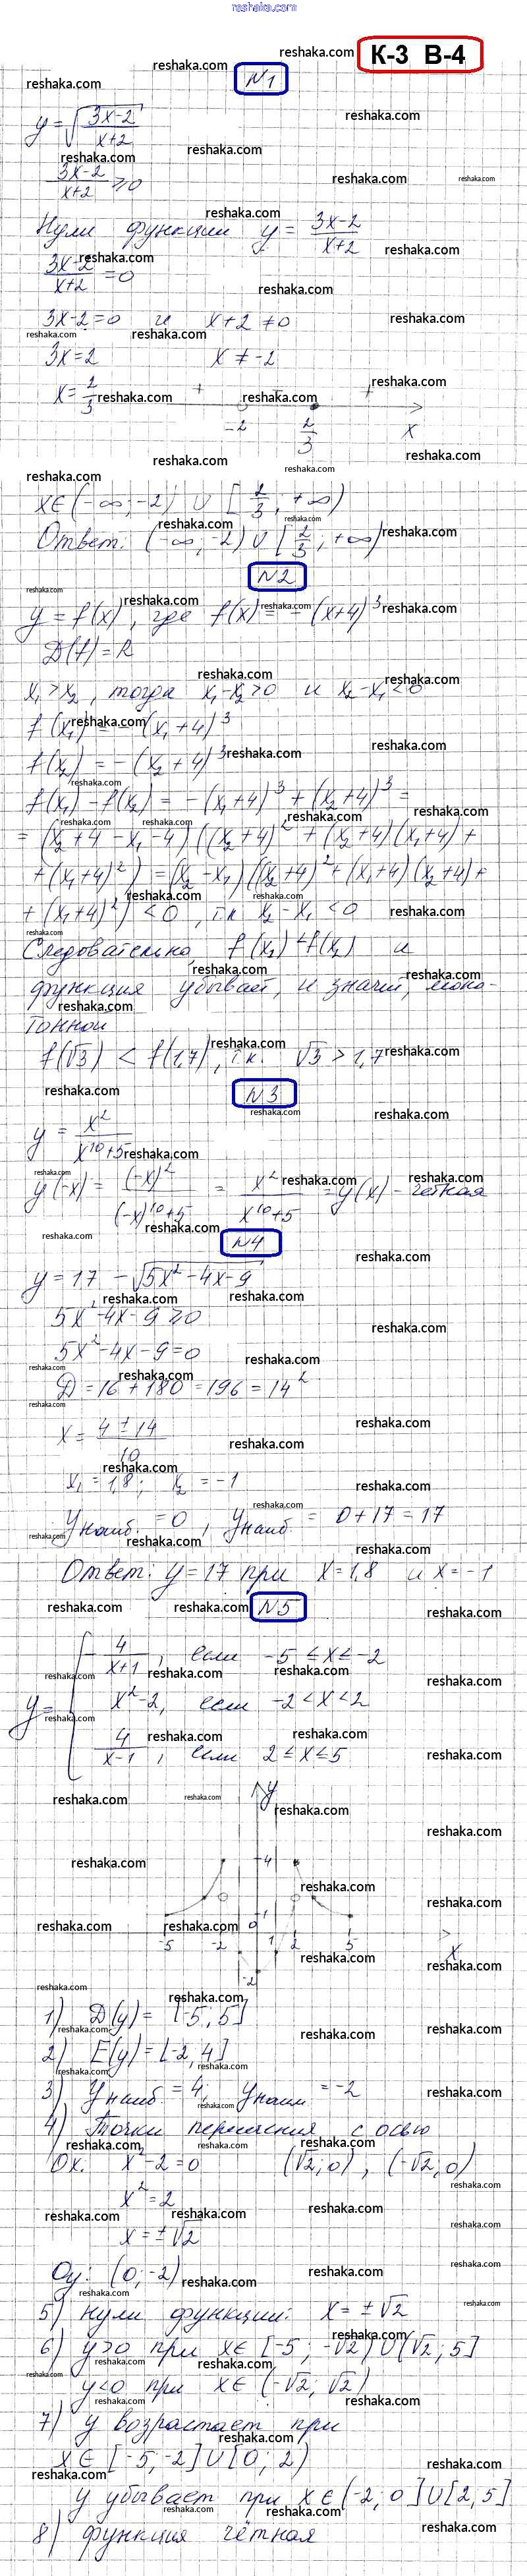 reshaka.com
К-3 В-4
N1
y = √((3x-2)/(x+2))
(3x-2)/(x+2) ≥ 0
Нули функции y = (3x-2)/(x+2)
(3x-2)/(x+2) = 0
3x-2=0 и x+2 ≠ 0
3x=2 x ≠ -2
x = 2/3
+ - +
-2 2/3 x
x∈(-∞; -2) ∪ [2/3; +∞)
Ответ: (-∞; -2) ∪ [2/3; +∞)
N2
y = f(x), где f(x) = -(x+4)³
D(f) = R
x₁ > x₂, тогда x₁-x₂>0 и x₂-x₁<0
f(x₁) = -(x₁+4)³
f(x₂) = -(x₂+4)³
f(x₁) - f(x₂) = -(x₁+4)³ + (x₂+4)³ =
= (x₂+4-x₁-4)((x₂+4)² + (x₂+4)(x₁+4) +
+ (x₁+4)²) = (x₂-x₁)((x₂+4)² + (x₁+4)(x₂+4) +
+ (x₁+4)²) < 0, т.к x₂-x₁ < 0
Следовательно, f(x₁) < f(x₂) и
функция убывает, и значит, моно-
тонной
f(√3) < f(1,7), т.к. √3 > 1,7
N3
y = x²/(x¹⁰+5)
y(-x) = (-x)²/((-x)¹⁰+5) = x²/(x¹⁰+5) = y(x) - четная
N4
y = 17 - √(5x²-4x-9)
5x²-4x-9 ≥ 0
5x²-4x-9 = 0
D = 16+180 = 196 = 14²
x = (4 ± 14)/10
x₁ = 1,8; x₂ = -1
yнаиб. = 0, yнаиб. = 0+17 = 17
Ответ: y = 17 при x = 1,8 и x = -1
N5
y = { -4/(x+1), если -5 ≤ x ≤ -2
x²-2, если -2 < x < 2
4/(x-1), если 2 ≤ x ≤ 5
y
4
1
-5 -2 0 1 2 5 x
-2
1) D(y) = [-5; 5]
2) E(y) = [-2, 4]
3) yнаиб = 4; yнаим = -2
4) Точки пересечения с осью
Ox: x²-2=0 (√2; 0), (-√2; 0)
x² = 2
x = ±√2
Oy: (0; -2)
5) нули функции: x = ±√2
6) y>0 при x∈[-5; -√2) ∪ (√2; 5]
y<0 при x∈(-√2; √2)
7) y возрастает при
x∈[-5; -2] ∪ [0; 2)
y убывает при x∈(-2; 0] ∪ [2; 5]
8) функция чётная